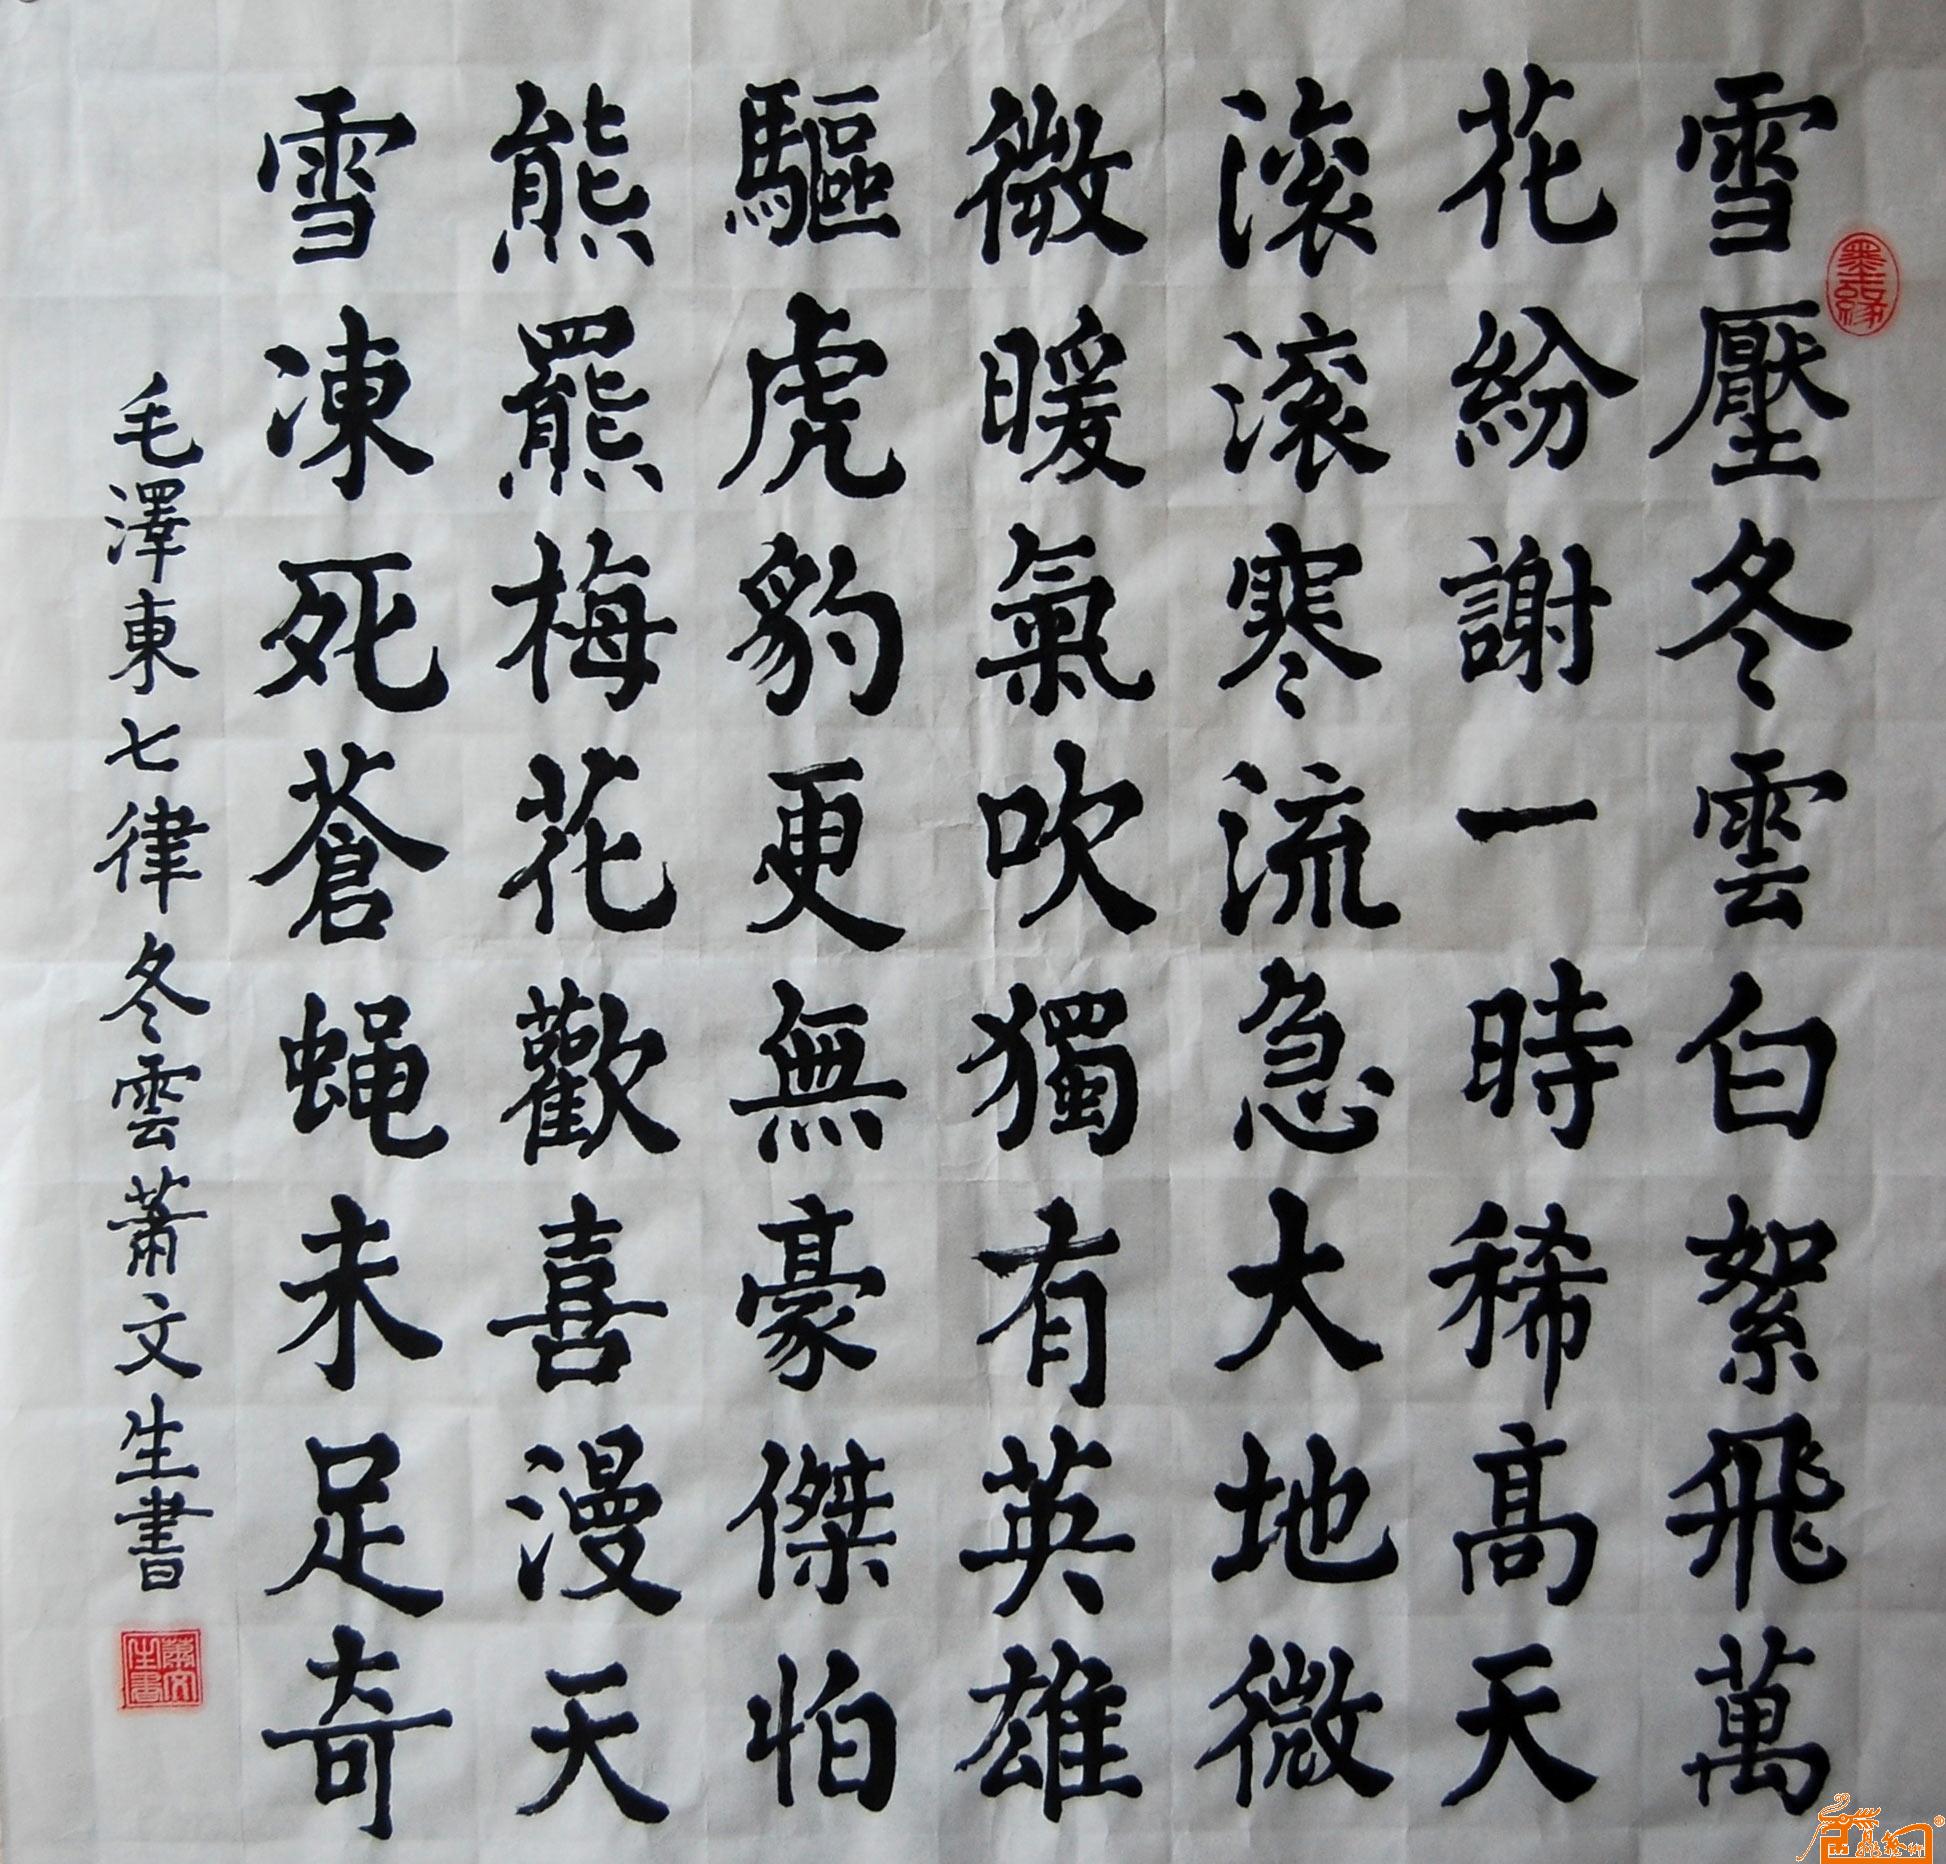 雪壓冬雲白絮飛萬
花紛謝一時稀髙天
滚滚寒流急大地微
微暖氣吹獨有英雄
驅虎豹更無豪傑怕
熊羆梅花歡喜漫天
雪凍死蒼蝇未足奇
毛澤東七律冬雲蕭文生書
墨緣
蕭文生書